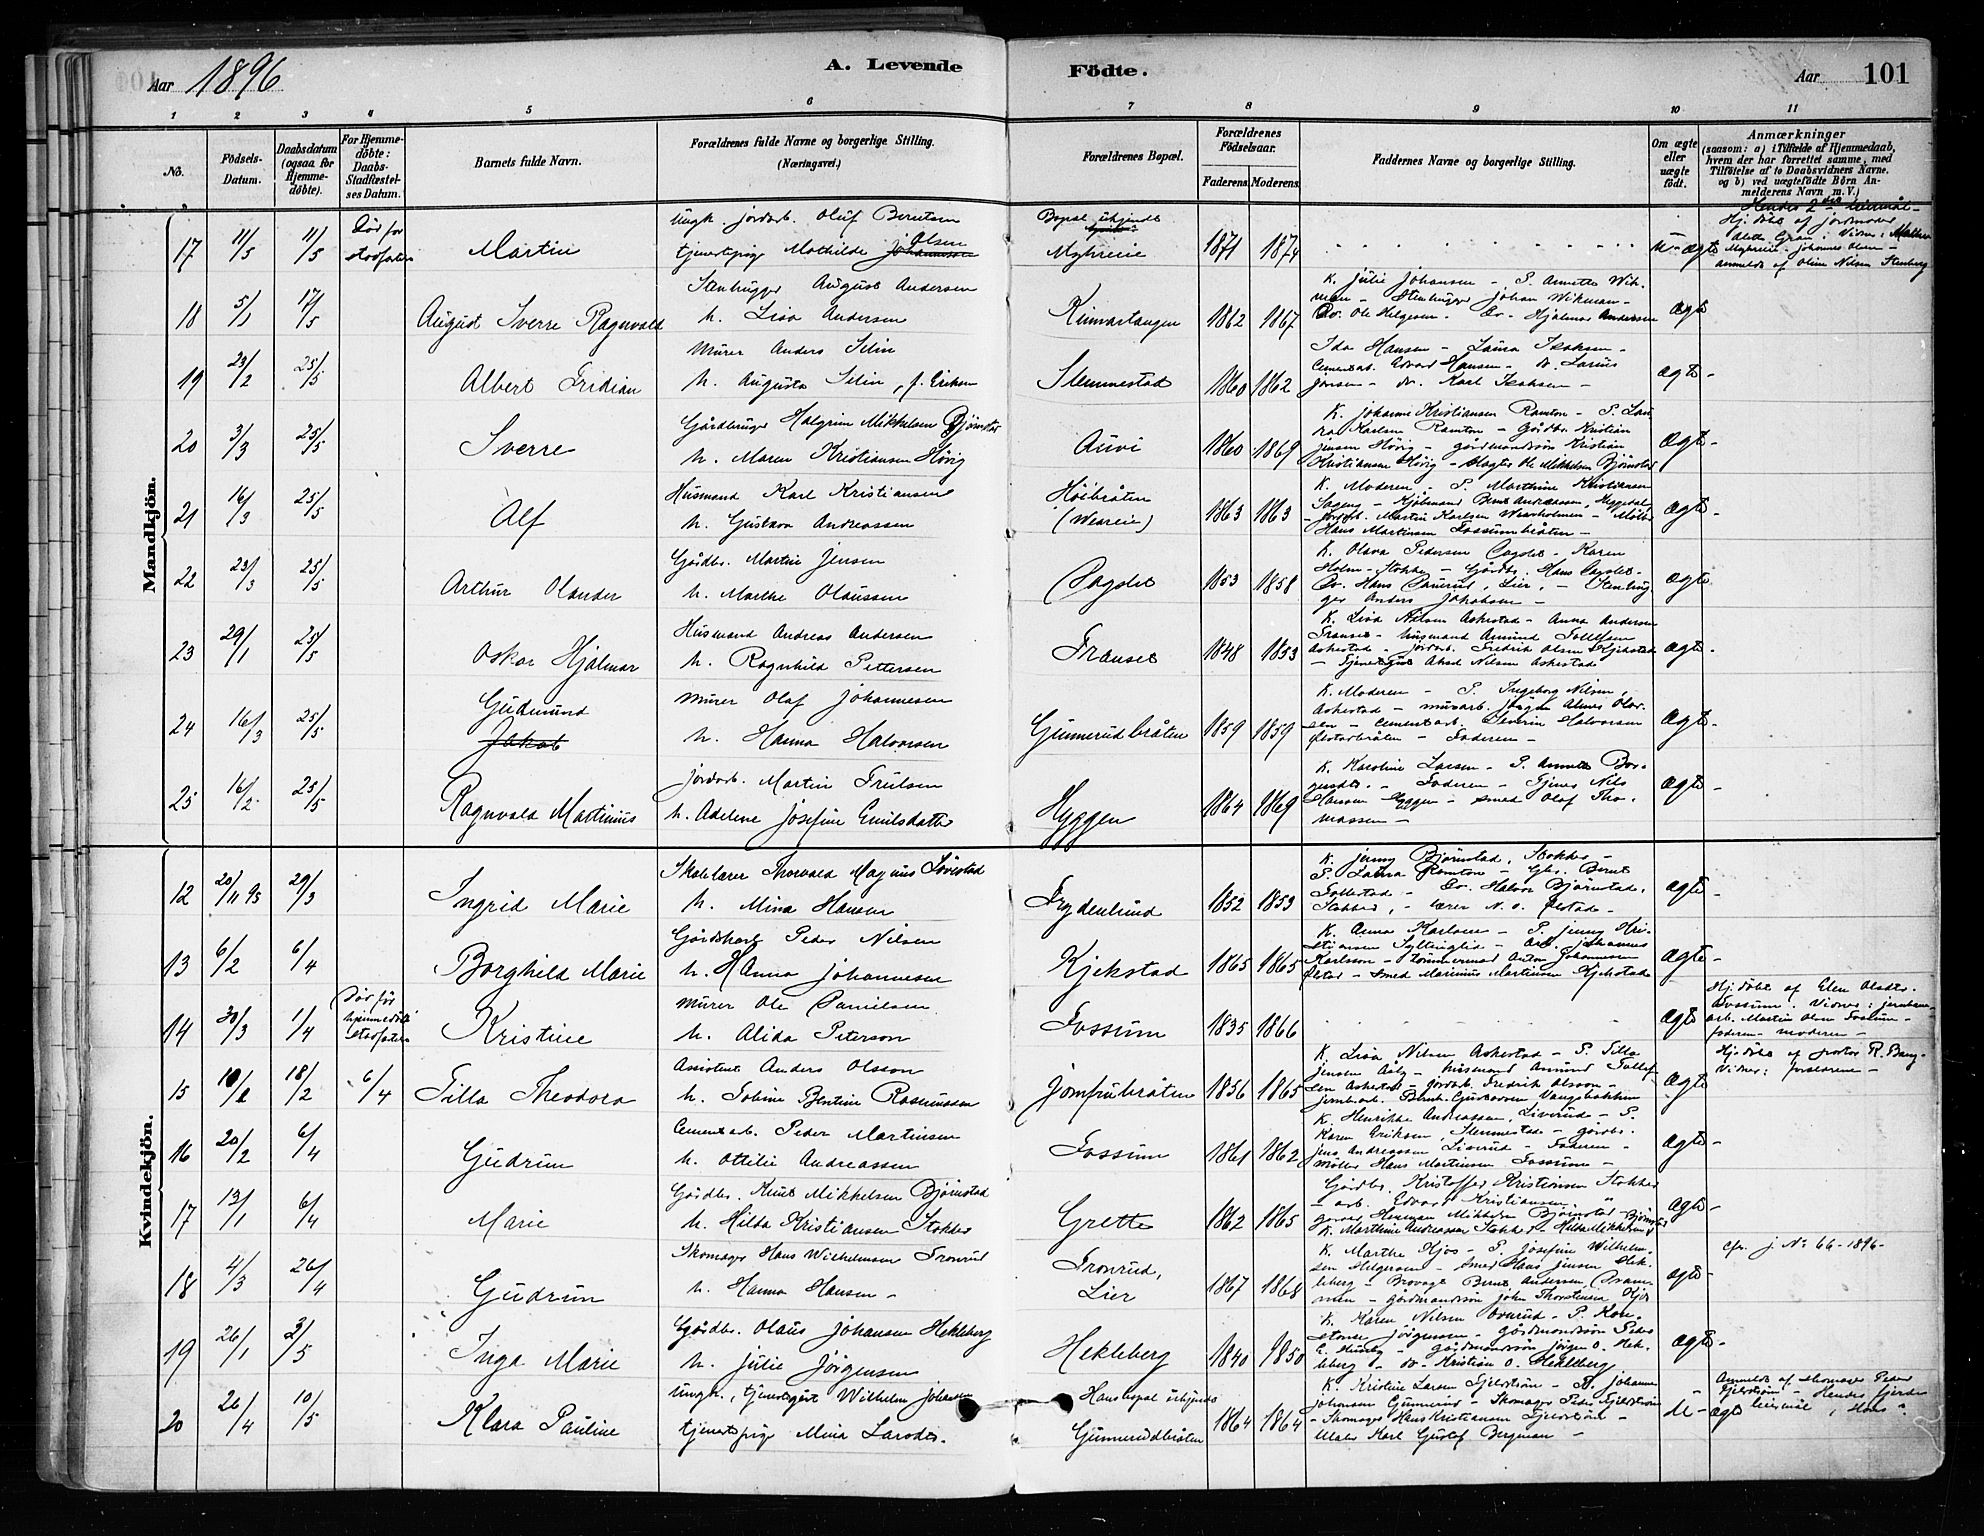 Aar 1896
A. Levende
Födte.
Aar 101
1 2 3 4 5 6 7 8 9 10 11
No.
Födsels-Datum.
Daabsdatum (ogsaa for Hjemme-döbte).
For Hjemme-döbte: Daabs-Stadfæstel-ses Datum.
Barnets fulde Navn.
Forældrenes fulde Navne og borgerlige Stilling. (Næringsvei.)
Forældrenes Bopæl.
Forældrenes Födselsaar.
Faderens. Moderens.
Faddernes Navne og borgerlige Stilling.
Om ægte eller uægte födt.
Anmærkninger
(saasom: a) i Tilfælde af Hjemmedaab, hvem der har forrettet samme, med Tilföielse af to Daabsvidners Navne, og b) ved uægtefödte Börn An-melderens Navn m. V.)
Mandkjön.
17 11/5 11/5 Død før stadfæstn Martin
Ungk. jordarb. Oluf Berntsen
tjenestepige Mathilde Johannesen Olsen
Bopæl ubekjendt
Myhreie 1871 1874 u-ægte
Hj. døbt af jordmoder
18 5/1 17/5 August Sverre Ragnvald
Stenhugger August Andersen
h. Lisa Andersen
Kinnartangen 1862 1867
K. Julie Johansen - P. Annette Wik-
man - Stenhugger Johan Wikman -
Do. Ole Helgesen - Do. Hjalmar Andersen
ægte
19 23/2 25/5 Albert Fridian
Murer Anders Selin
h. Augusta Selin, f. Eriksen
Slemmestad 1860 1862
Ida Hansen - Laura Isaksen -
Cementarb. Edvard Hansen - do. Larius
Jonsen - do. Karl Isaksen -
ægte
20 3/3 25/5 Sverre
Gårdbruger Halgrim Mikkelsen Bjørnstad
h. Maren Kristiansen Høvig
Auvi 1860 1869
K. Johanne Kristiansen Ramton - P. Lau
ra Karlsen Ramton - Gårdbr. Kristian
Jensen Høvig - gårdmandssøn Kristian
Kristiansen Høvig - Slagter Ole Mikkelsen Bjørnstad
ægte -
21 16/3 25/5 Alf
Husmand Karl Kristiansen
h. Gustava Andreassen
Høibråten
(Weareie) 1863 1863
K. Moderen - P. Marthine Kristiansen
Jordarb. Martin Karlsen Wearholmen - Møller
Hans Martinsen Fossumbråten -
ægte -
22 23/3 25/5 Arthur Olander
Gårdbr. Martin Jensen
h. Marthe Olaussen
1853 1858
K. Olava Pedersen
Holm - Stokke - Gårdbr. Hans
Lier, Stenhug-
ger Anders Jakobsen -
ægte
23 29/1 25/5 Oskar Hjalmar
Husmand Andreas Andersen
h. Ragnhild Pettersen
Franset 1848 1853
K. Lisa Nilsen Askestad - Anna Andersen
Franset - husmand Amund Tollefsen
Askestad - jordarb. Fredrik Olsen Kjekstad
- Tjenestegut Aksel Nilsen Askestad
ægte -
24 16/13 25/5 Gudmund
Jakob
Murer Olaf Johannesen
h. Hanna Halvorsen
Gunnerudbråten 1859 1859
K. Moderen - P. Ingeborg Nilsen,
Askestad - murarb. Jørgen Olav-
sen - Cementarb. Severin Halvorsen
- Faderen -
ægte -
25 16/2 25/5 Ragnvald Martinius
Jordarb. Martin Trulsen
h. Adeline Josefine Emilsdatter
Hyggen 1864 1869
K. Karoline Larsen - P. Annette Bor-
- Faderen - Tjener Nils
Hansen Hyggen - Smed Olaf Tho-
massen -
ægte -
Kvindekjön.
12 20/11 95 29/3 Ingrid Marie
Skolelærer Thorvald Magnus Løvestad
h. Mina Hansen
Frydenlund 1852 1853
K. Jenny Bjørnstad, Stokker -
P. Laura Ramton - Gbr. Bernt
Tollestad - Do. Halvor Bjørnstad,
Stokker, - Lærer N. O. Ølstad -
ægte -
13 6/2 6/4 Borghild Marie
Gårdskarl Peder Nilsen
h. Hanna Johannesen
Kjekstad 1865 1865
K. Anna Karlsen - P. Jenny Kri-
stiansen Syltinglid - Arb. Johannes
Karlsson - Tømmermand Anton Johannesen
Ølstad - Smed Marinius Martinsen Kjekstad
ægte -
14 30/3 1/4 Død før hjemmedåbs stadfæstn Kristine
Murer Ole Danielsen
h. Alida Peterson
Fossum 1835 1866
ægte
Hj. døbt af Elen Olsdtr.
Fossum. Vidner: jernbane
arb. Martin Olsen Fossum -
faderen - moderen -
15 10/2 18/2 6/4 Tilla Theodora
Assistent Anders Olsson
h. Tobine Bentine Rasmussen
Jomfrubråten 1856 1865
K. Lisa Nilsen Askestad - P. Tilla
Jensen Aaby - husmand Amund Tollef-
sen Askestad - jordarb. Fredrik Olsson -
Jernbarb. Bernt Gustavsen Vangsbakken
ægte
Hj. døbt af pastor R. Bang -
Vidner: forældrene -
16 20/2 6/4 Gudrun
Cementarb. Peder Martinsen
h. Ottilie Andreassen
Fossum 1861 1862
K. Henrikke Andreassen, Liverud - P.
Karen Eriksen, Slemmestad - gårdbr.
Jens Andreassen Liverud - Faderen -
Møller Hans Martinsen Fossum -
ægte -
17 13/1 6/4 Marie
Gårdbr. Knut Mikkelsen Bjørnstad
h. Hilda Kristiansen Stokker
Grette 1862 1865
Gårdbr. Kristoffer Kristiansen Stokker
- arb. Edvard Kristiansen "
Herman Mikkelsen Bjørnstad -
K. Marthine Andreassen Stokker - Hilda Mikkelsen
ægte -
18 4/3 26/4 Gudrun
Skomager Hans Wilhelmsen Tronrud
h. Hanna Hansen -
Tronrud,
Lier 1867 1868
K. Marthe Kjos - P. Josefine Wilhelm-
sen Helgerson - Smed Hans Jensen Hek-
leberg - Brovagt Bernt Andersen, Dram-
men - gårdmandssøn John Thorstensen Kjos
ægte -
cfr. j. No 66 - 1896 -
19 26/1 3/5 Inga Marie
Gårdbr. Olaus Johansen Hekleberg
h. Julie Jørgensen
Hekleberg 1840 1850
K. Karen Nilsen Overud - P. Kon-
stanse Jørgensen - gårdmandssøn Peder
E. Huseby - gårdmandssøn Jørgen O. Hek-
leberg - do - Kristian O. Hekleberg
ægte -
20 26/4 10/5 Klara Pauline
Ungk., tjenestegut Wilhelm Johansen
tjenestepige Mina Larsdtr.
Hans bopæl ubekjendt
Gunnerudbråten 1864 1864
K. Kristine Larsen Fjeldstrøm - P. Johanne
Johansen Gunnerud - Skomager Peder Fjeldstrøm
- Skomager Hans Kristiansen Fjeldstrøm -
Maler Karl Gustaf Bergman -
U-ægte
Anmeldt af skomager Peder
Fjeldstrøm - Hendes fjerde
leiermål, Hans